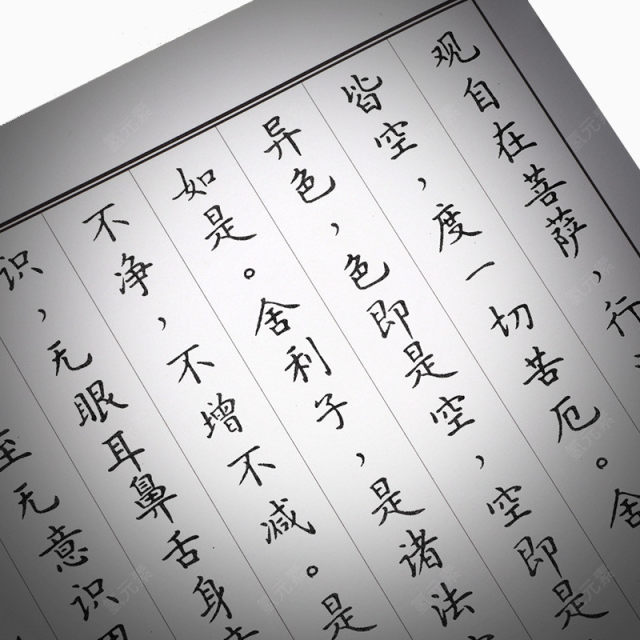 观自在菩萨，行
皆空，度一切苦厄。舍
异色，色即是空，空即是
如是。舍利子，是诸法
不净，不增不减。是
识，无眼耳鼻舌身
至无意识界